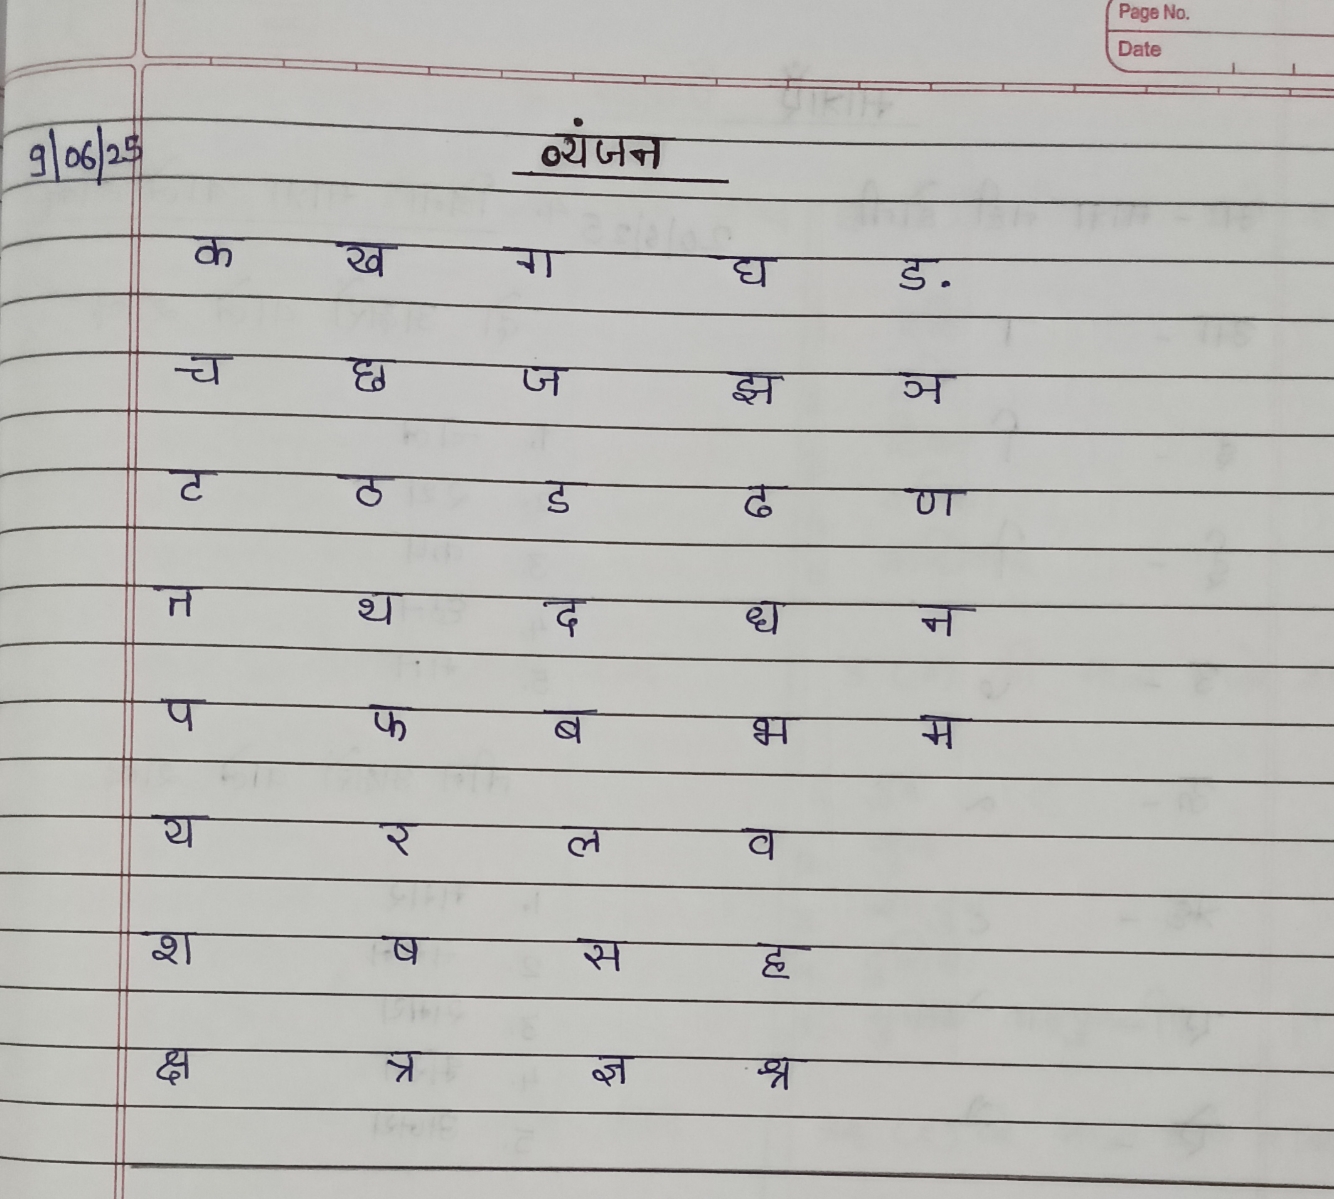 Page No.
Date
9/06/25
व्यंजन
क ख ग घ ङ
च छ ज झ ञ
ट ठ ड ढ ण
त थ द ध न
प फ ब भ म
य र ल व
श ष स ह
क्ष त्र ज्ञ श्र